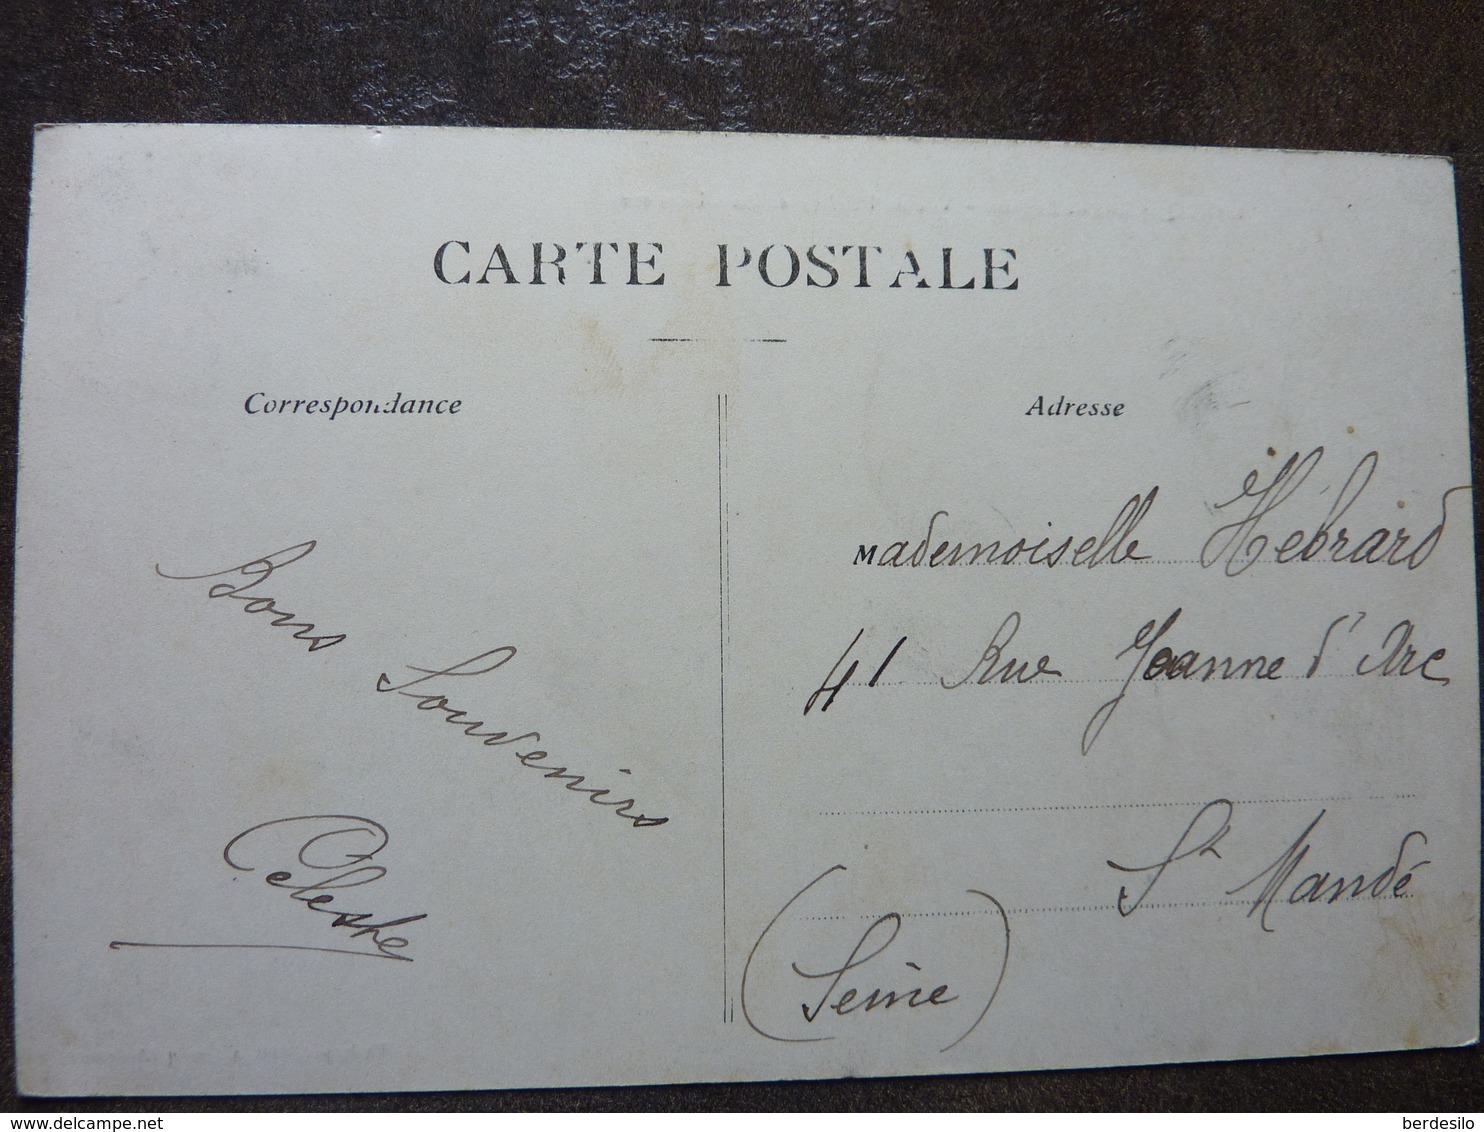 CARTE POSTALE
Correspondance
Adresse
Bons Souvenirs
Celeste
Mademoiselle Hébrard
41 Rue Jeanne d'Arc
St Mandé
(Seine)
berdesilo